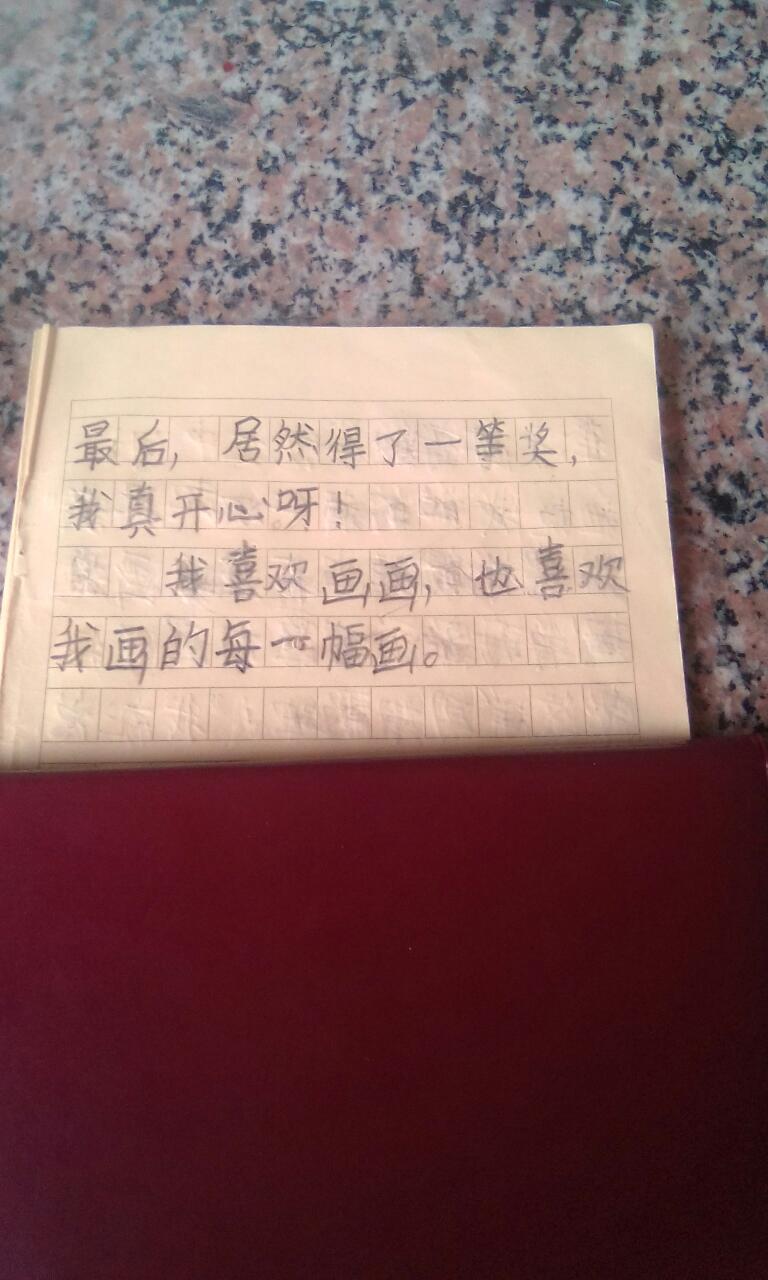 最后，居然得了一等奖，
我真开心呀！
我喜欢画画，也喜欢
我画的每一幅画。